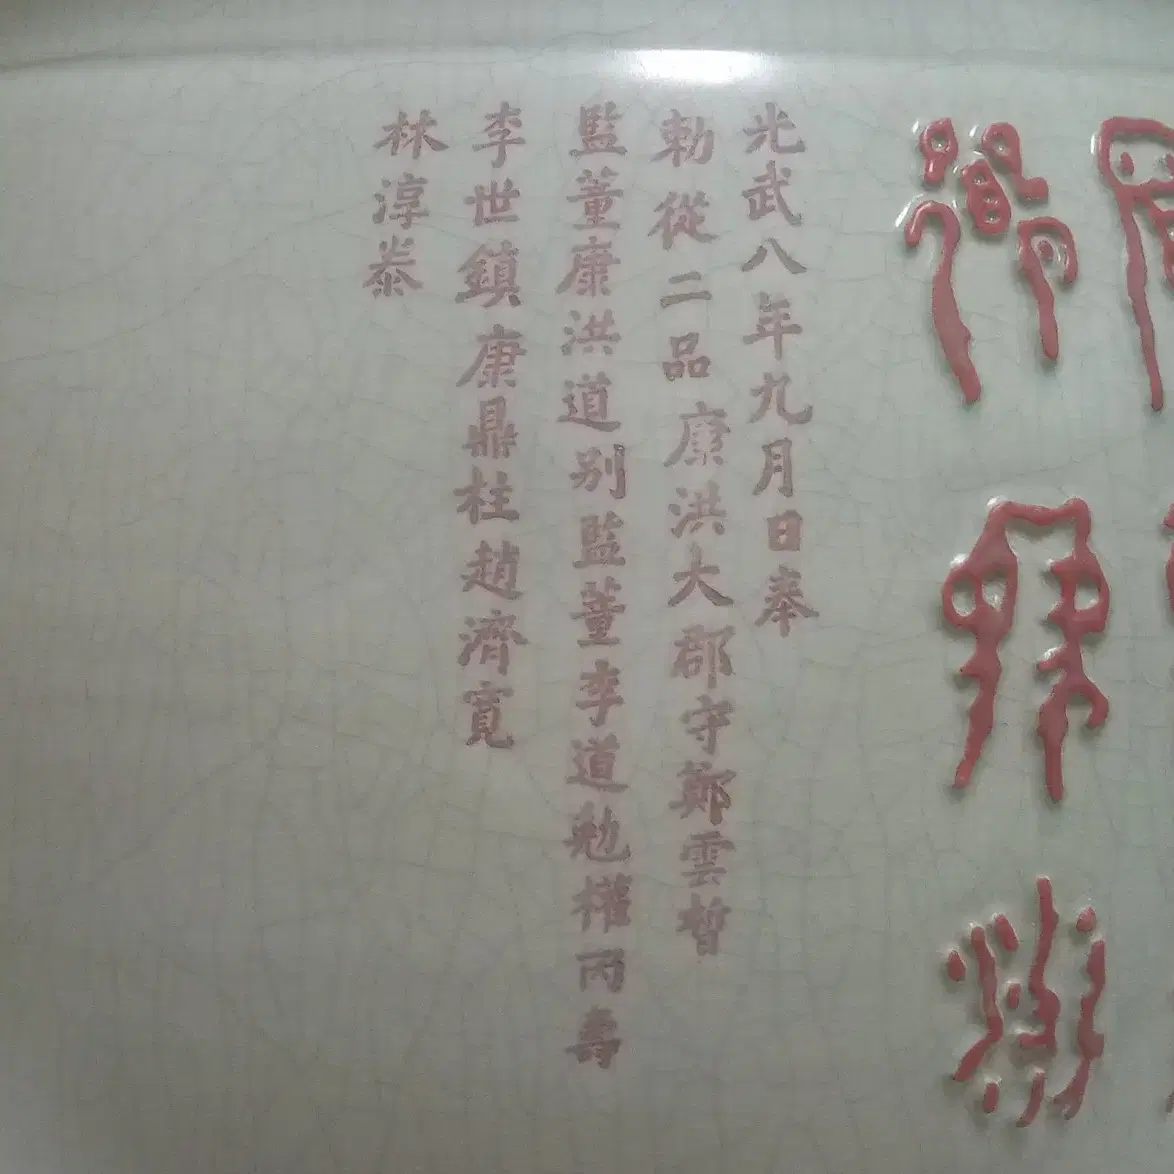 光武八年九月日奉
勅從二品康洪大郡守鄭雲晳
監董康洪道別監董李道勉權丙壽
李世鎮康鼎柱趙濟寬
林淳泰